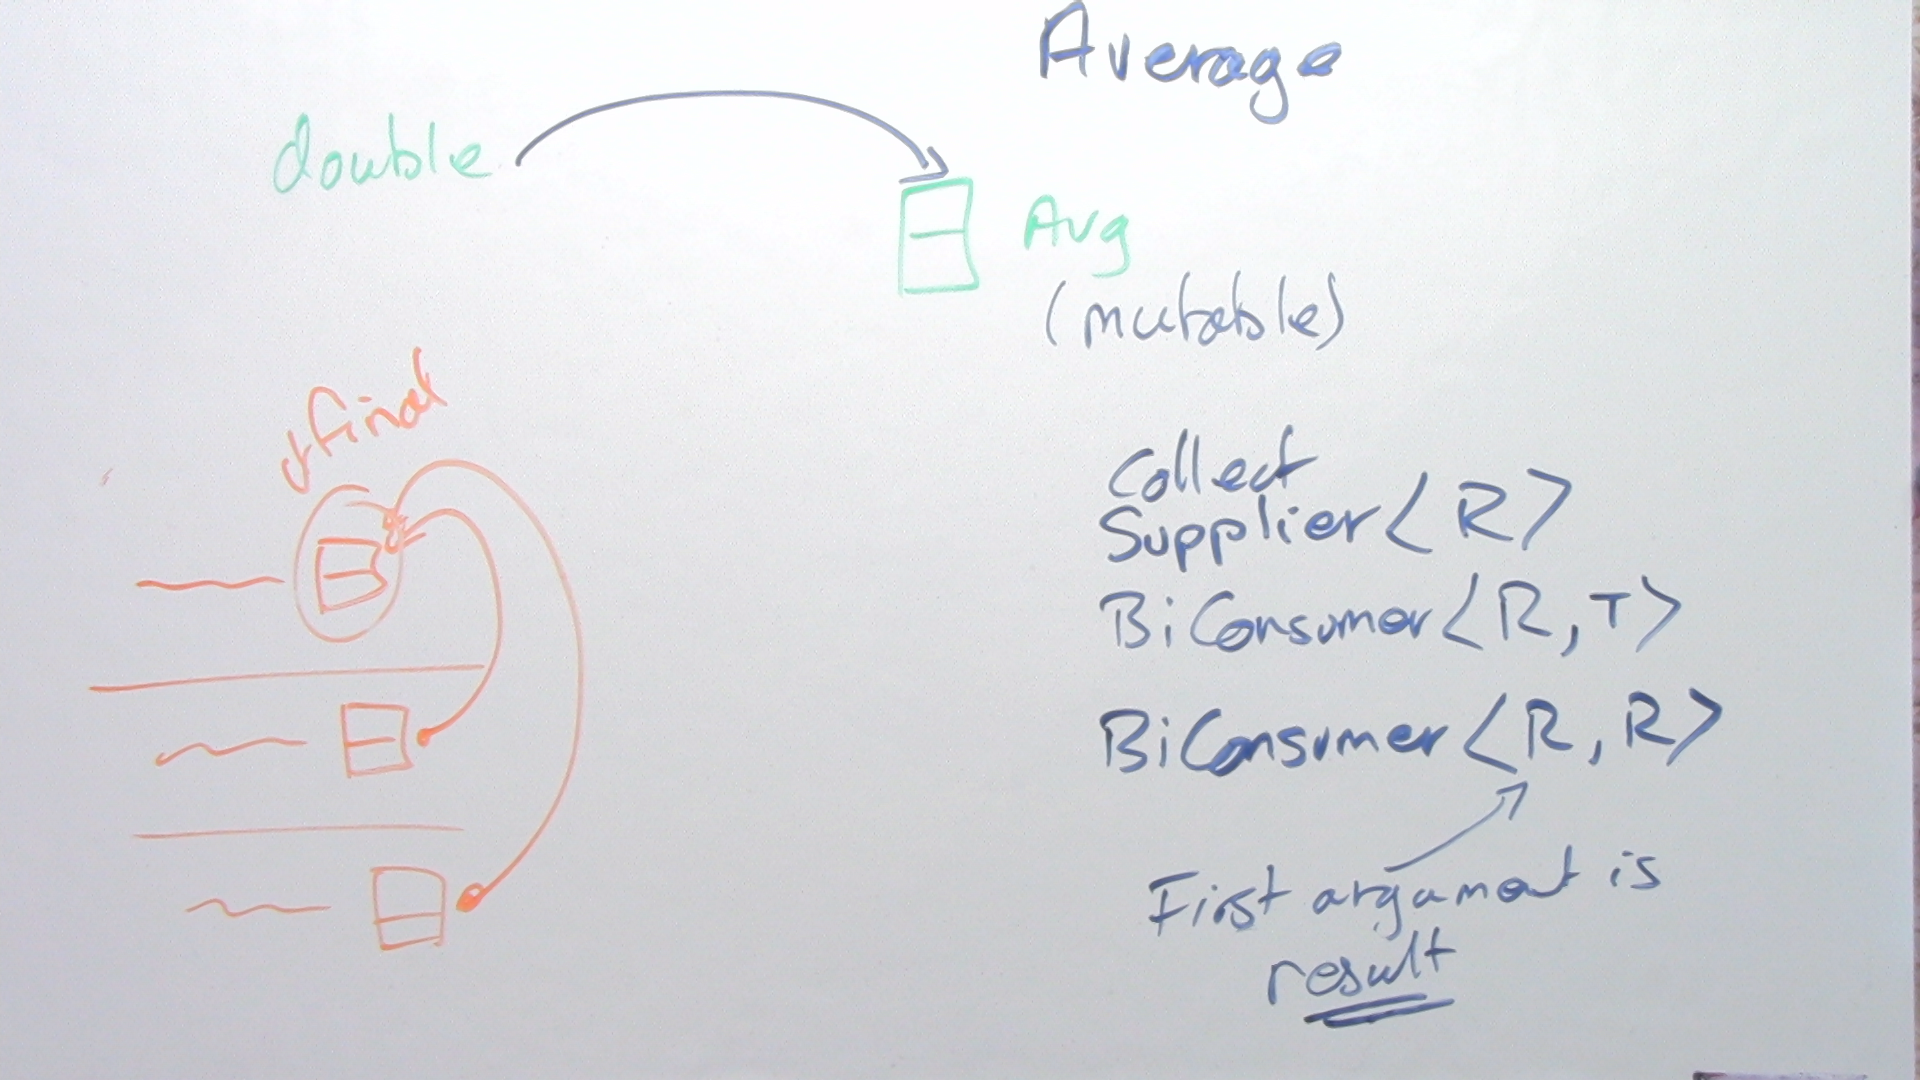 Average
double
Avg
(mutable)
final
Collect
Supplier<R>
BiConsumer<R,T>
BiConsumer<R,R>
First argument is
result